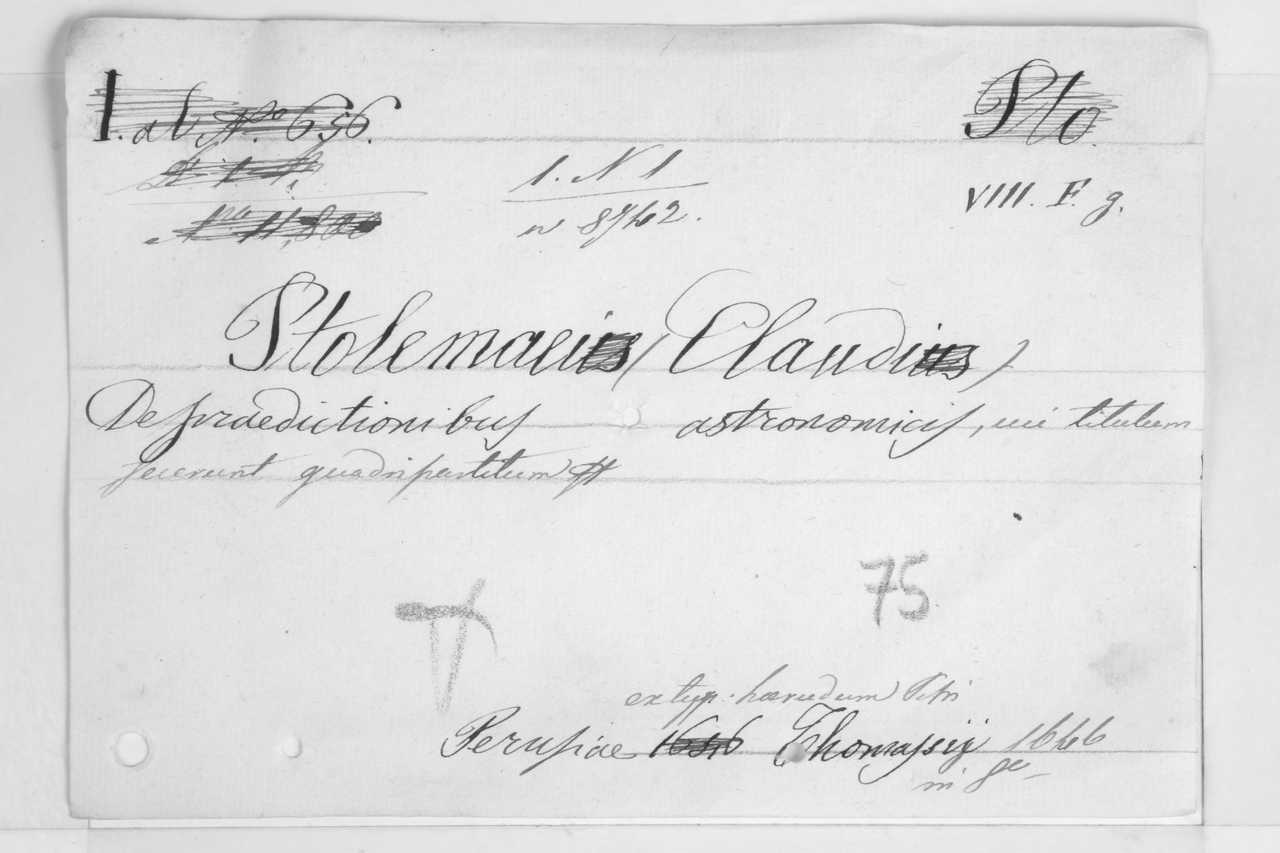 1. ab No. 656. Pto.
1. N 1
VIII. F. g.
n 8462.
Ptolemaeius (Claudius)
De praedictionibus astronomicis, cui titulum
fecerunt quadripartitum
75
ex typ. haeredum Petri
Perusiae 1646 Thomassij 1646
in 8o